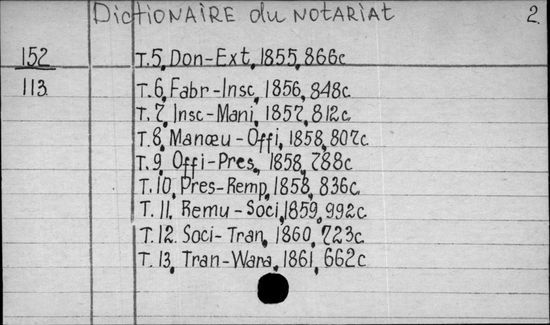 Dictionaire du Notariat 2.
152 T.5, Don-Ext, 1855, 866c
113 T.6, Fabr-Insc, 1856, 848c
T.7, Insc-Mani, 1857, 812c
T.8, Manœu-Offi, 1858, 807c
T.9, Offi-Pres, 1858, 788c
T.10, Pres-Remp, 1858, 836c
T.11, Remu-Soci, 1859, 992c
T.12. Soci-Tran, 1860, 723c
T.13, Tran-Wara, 1861, 662c